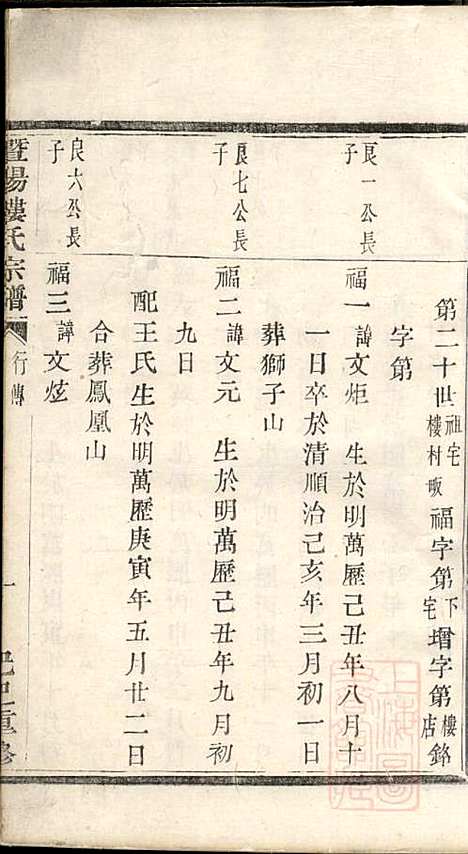 第二十世祖宅樓村畈福字第下宅增字第樓店銘
字第
良一公長子
福一諱文炬 生於明萬歷己丑年八月十
一日卒於清順治己亥年三月初一日
葬獅子山
良七公長子
福二諱文元 生於明萬歷己丑年九月初
九日
配王氏生於明萬歷庚寅年五月廿二日
合葬鳳凰山
良六公長子
福三諱文炫
暨陽樓氏宗譜 行傳 一 重修